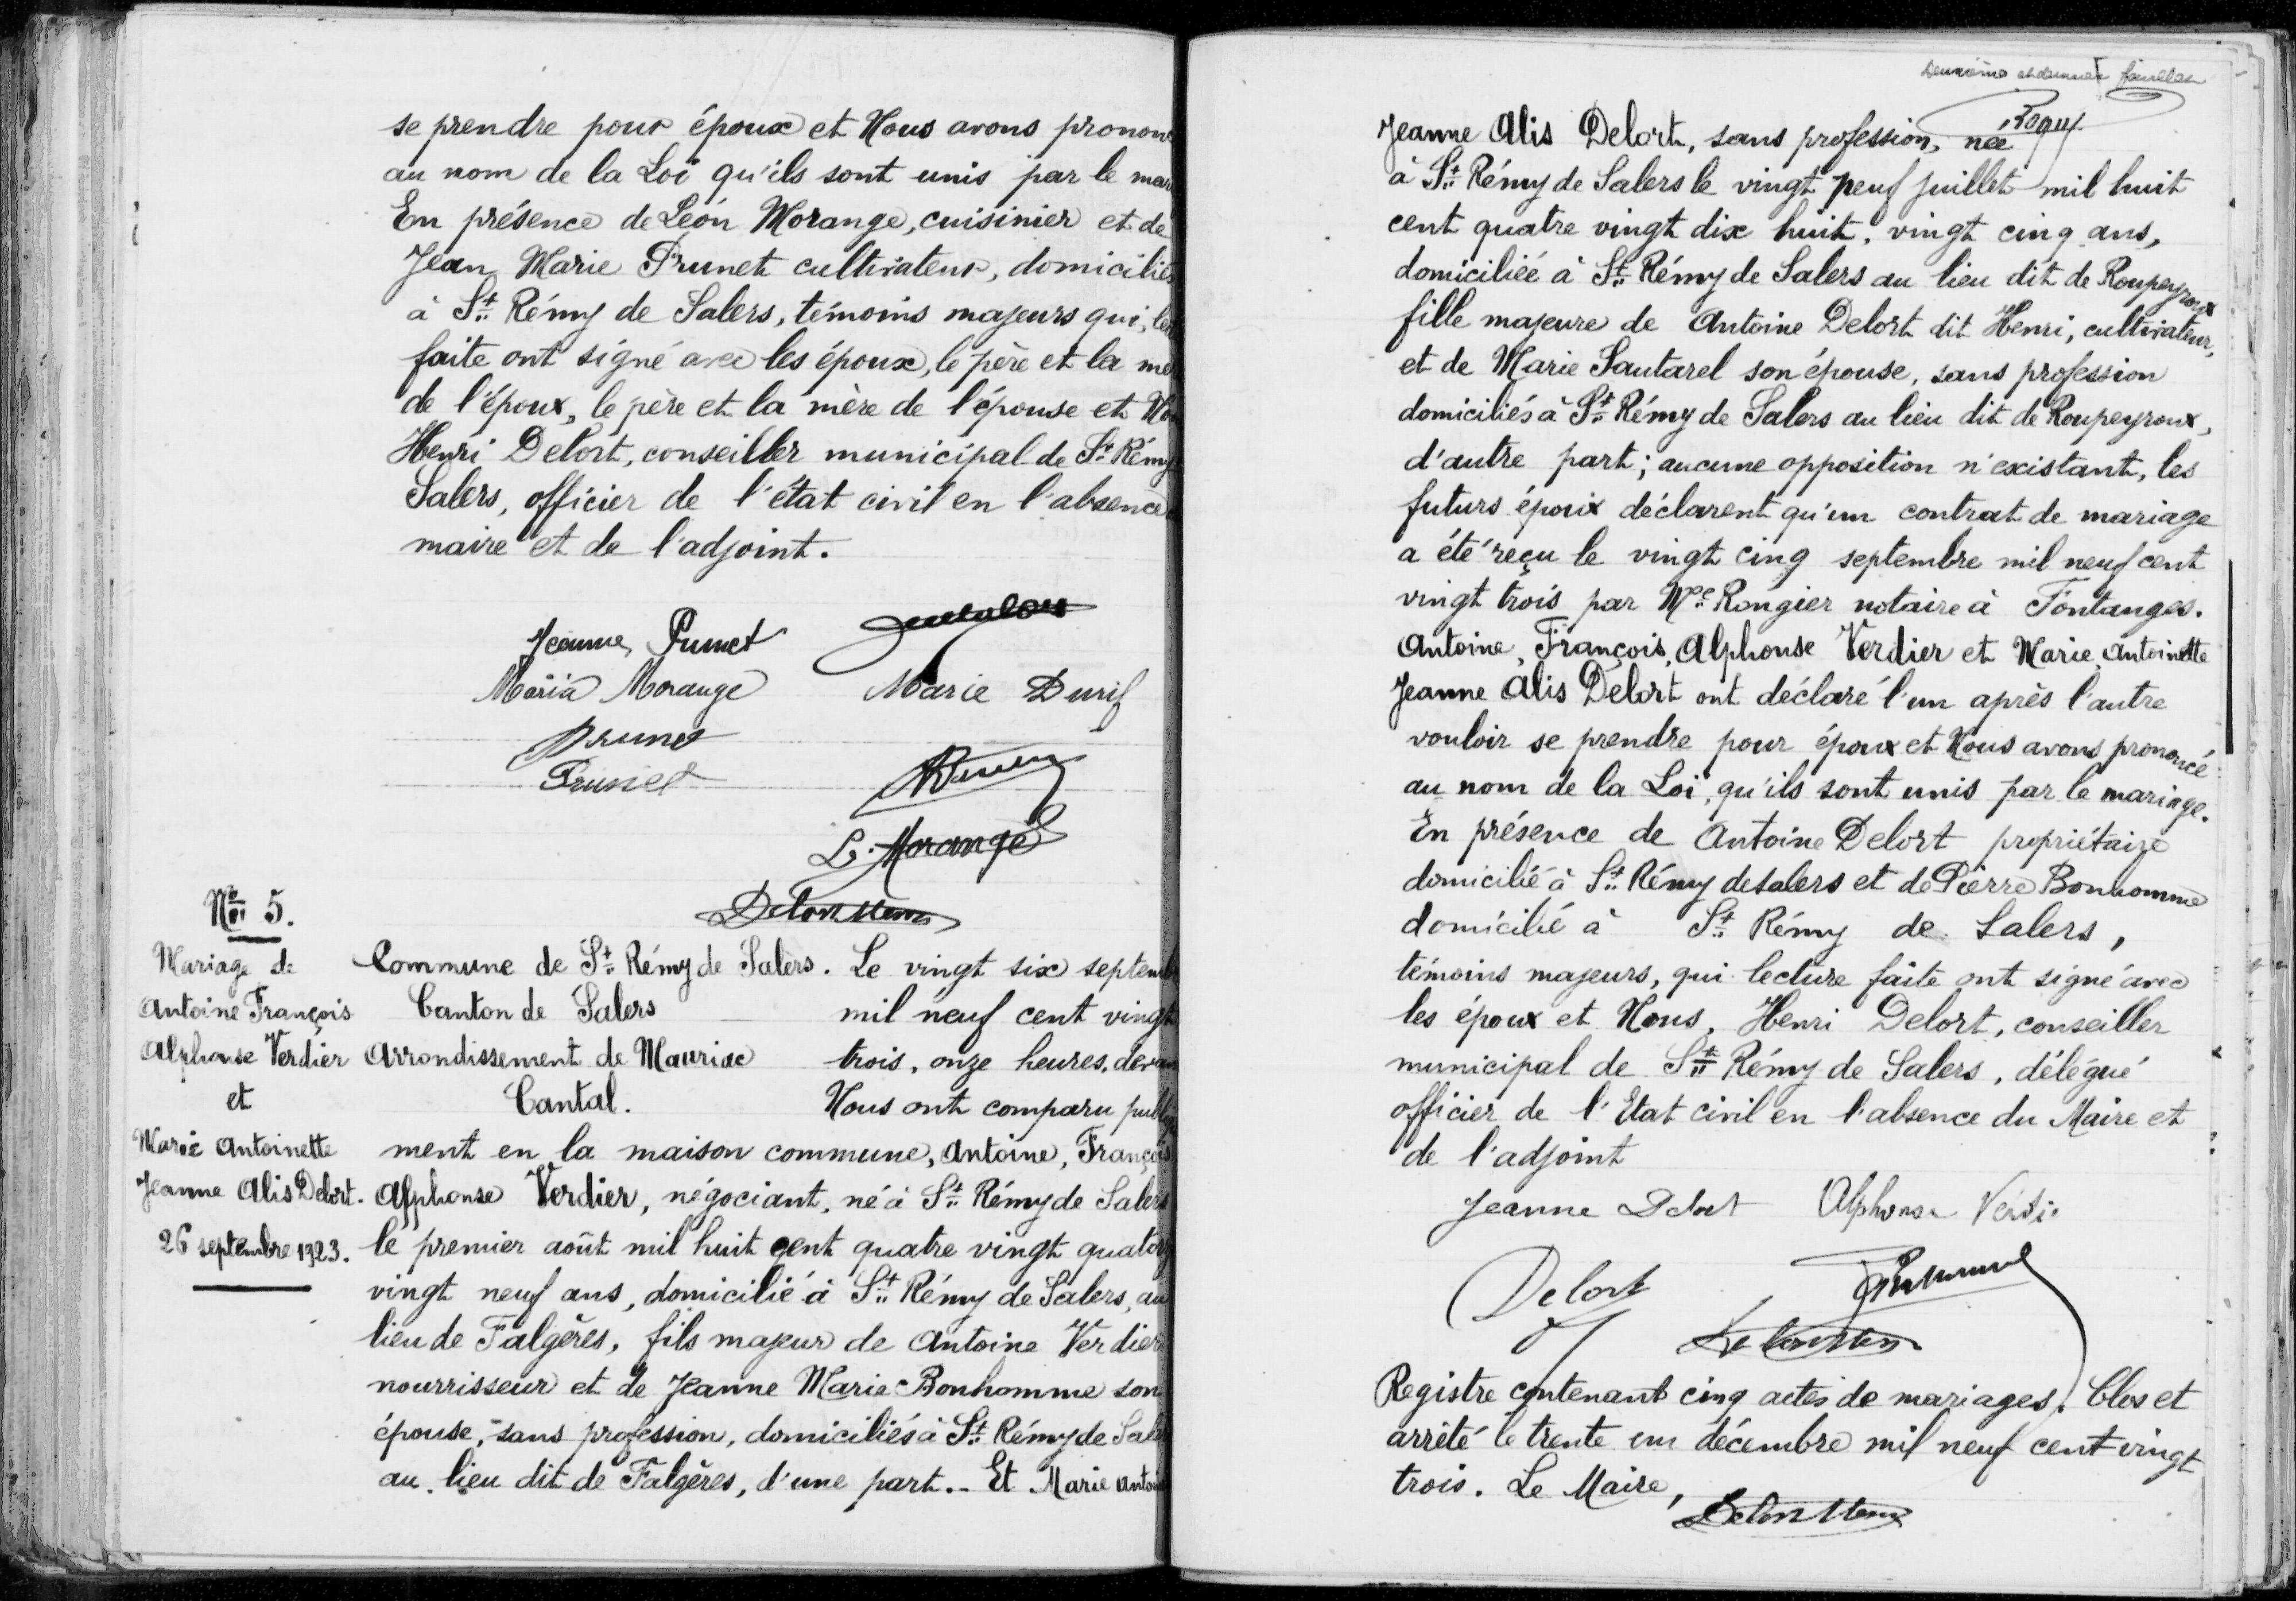 se prendre pour époux et Nous avons prononc
au nom de la Loi qu'ils sont unis par le mar
En présence de Léon Morange, cuisinier et de
Jean Marie Prunet cultivateur, domiciliés
à St Rémy de Salers, témoins majeurs qui, lec
faite ont signé avec les époux, le père et la mè
de l'époux, le père et la mère de l'épouse et Nou
Henri Delort, conseiller municipal de St Rémy
Salers, officier de l'état civil en l'absence
maire et de l'adjoint.
Jeanne Prunet
Maria Morange Marie Durif
Prunet
Prunet
L. Morange
Delort Henri
No 5.
Mariage de
Antoine François
Alphonse Verdier
et
Marie Antoinette
Jeanne Alis Delort.
26 septembre 1923.
Commune de St Rémy de Salers. Le vingt six septemb
Canton de Salers mil neuf cent vingt
Arrondissement de Mauriac trois, onze heures, devan
Cantal. Nous ont comparu publiq
ment en la maison commune, Antoine, François
Alphonse Verdier, négociant, né à St Rémy de Salers
le premier août mil huit cent quatre vingt quatorz
vingt neuf ans, domicilié à St Rémy de Salers, au
lieu de Falgères, fils majeur de Antoine Verdier
nourrisseur et de Jeanne Marie Bonhomme son
épouse, sans profession, domiciliés à St Rémy de Sal
au lieu dit de Falgères, d'une part. - Et Marie Antoi
Deuxième et dernier feuillet
Jeanne Alis Delort, sans profession, née
à St Rémy de Salers le vingt neuf juillet mil huit
cent quatre vingt dix huit, vingt cinq ans,
domiciliée à St Rémy de Salers au lieu dit de Roupeyroux
fille majeure de Antoine Delort dit Henri, cultivateur,
et de Marie Sautarel son épouse, sans profession
domiciliés à St Rémy de Salers au lieu dit de Roupeyroux,
d'autre part; aucune opposition n'existant, les
futurs époux déclarent qu'un contrat de mariage
a été reçu le vingt cinq septembre mil neuf cent
vingt trois par Me Rongier notaire à Fontanges.
Antoine, François, Alphonse Verdier et Marie, Antoinette
Jeanne Alis Delort ont déclaré l'un après l'autre
vouloir se prendre pour époux et Nous avons prononcé
au nom de la Loi, qu'ils sont unis par le mariage.
En présence de Antoine Delort propriétaire
domicilié à St Rémy de salers et de Pierre Bonhomme
domicilié à St Rémy de Salers,
témoins majeurs, qui lecture faite ont signé avec
les époux et Nous, Henri Delort, conseiller
municipal de St Rémy de Salers, délégué
officier de l'Etat civil en l'absence du Maire et
de l'adjoint
Jeanne Delort Alphonse Verdier
Delort
Delort Henri
Registre contenant cinq actes de mariages. Clos et
arrêté le trente un décembre mil neuf cent vingt
trois. Le Maire,
Delort Henri